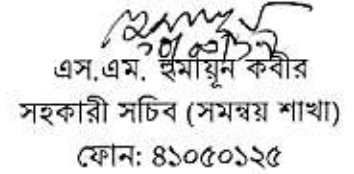 এস.এম. হুমায়ুন কবীর
সহকারী সচিব (সমন্বয় শাখা)
ফোন: ৪১০৫০১২৫